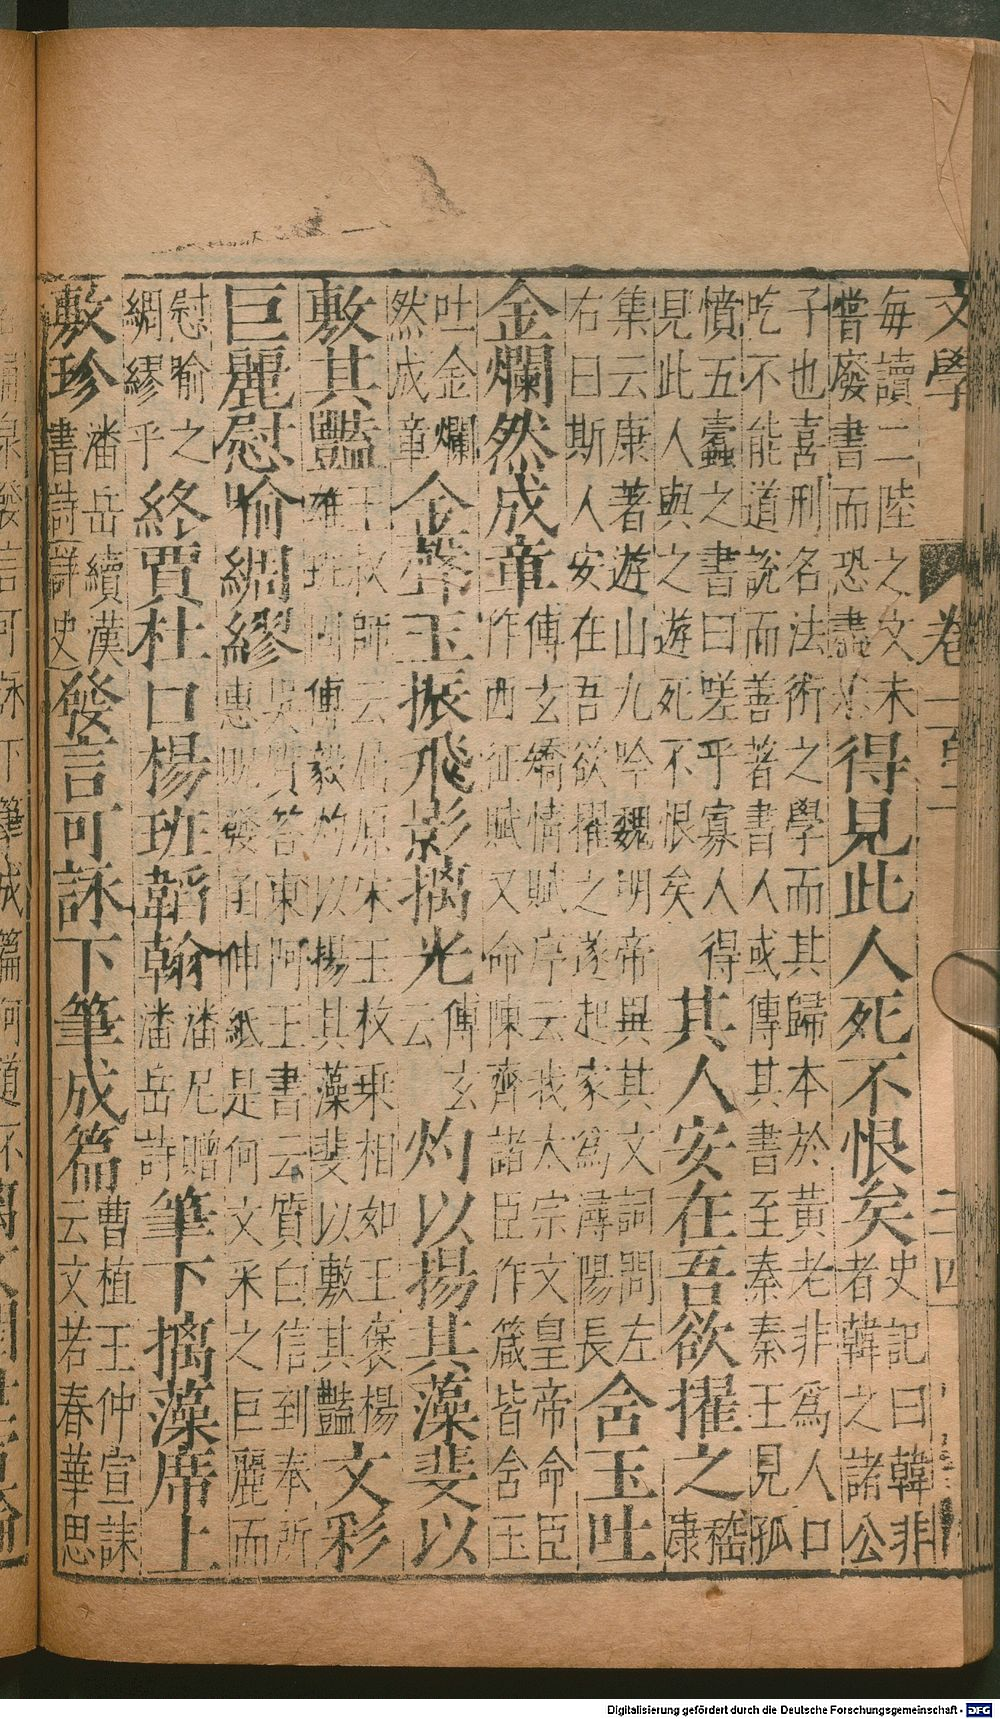 文學 卷一百三 三四
每讀二陸之文未
嘗廢書而恐盡
得見此人死不恨矣
史記曰韓非
者韓之諸公
子也喜刑名法術之學而其歸本於黃老非為人口
吃不能道說而善著書人或傳其書至秦秦王見孤
憤五蠹之書曰嗟乎寡人得
見此人與之遊死不恨矣
其人安在吾欲擢之
嵇
康
集云康著遊山九吟魏明帝異其文詞問左
右曰斯人安在吾欲擢之遂起家為潯陽長
舍玉吐
金爛然成章
傅玄矯情賦序云我太宗文皇帝命臣
作西征賦又命陳齊諸臣作箴皆舍玉
吐金爛
然成章
金聲玉振飛影摛光
傅玄
云
灼以揚其藻斐以
敷其豔
王叔師云屈原宋玉枚乘相如王褒楊
雄班固傅毅灼以揚其藻斐以敷其豔
文彩
巨麗慰喻綢繆
吳質答東阿王書云質白信到奉所
惠貺發函伸紙是何文采之巨麗而
慰喻之
綢繆乎
終賈杜口楊班韜翰
潘尼贈
潘岳詩
筆下摛藻席上
敷珍
潘岳續漢
書詩 史
發言可詠下筆成篇
曹植王仲宣誄
云文若春華思
Digitalisierung gefördert durch die Deutsche Forschungsgemeinschaft - DFG